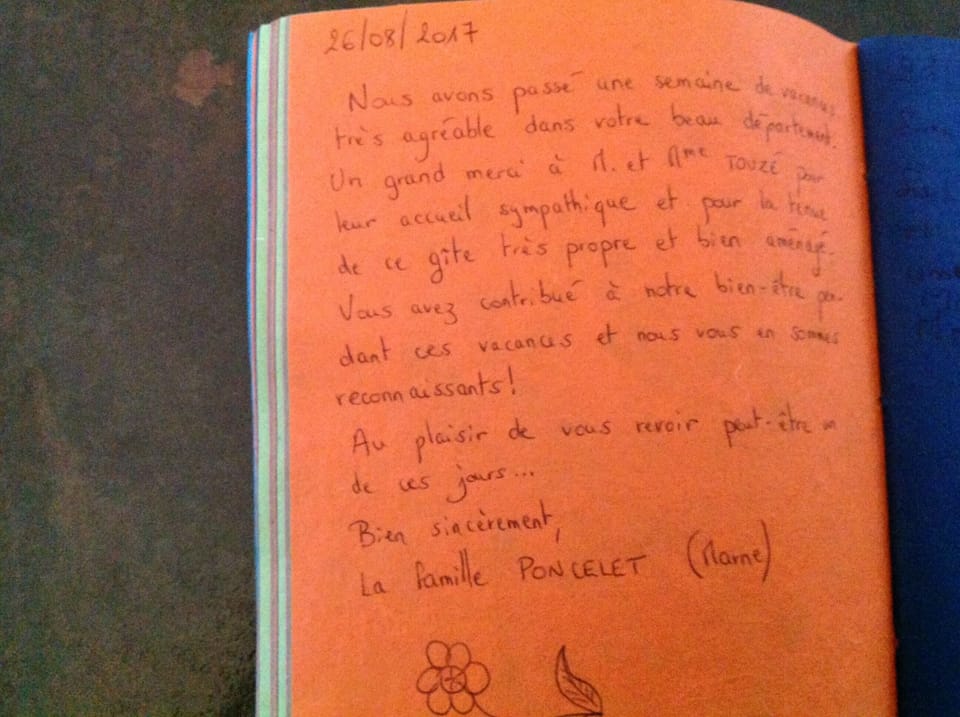 26/08/2017
Nous avons passé une semaine de vacances
très agréable dans votre beau département.
Un grand merci à M. et Mme TOUZÉ pour
leur accueil sympathique et pour la tenue
de ce gîte très propre et bien aménagé.
Vous avez contribué à notre bien-être pen-
dant ces vacances et nous vous en sommes
reconnaissants!
Au plaisir de vous revoir peut-être un
de ces jours...
Bien sincèrement,
La famille PONCELET (Marne)